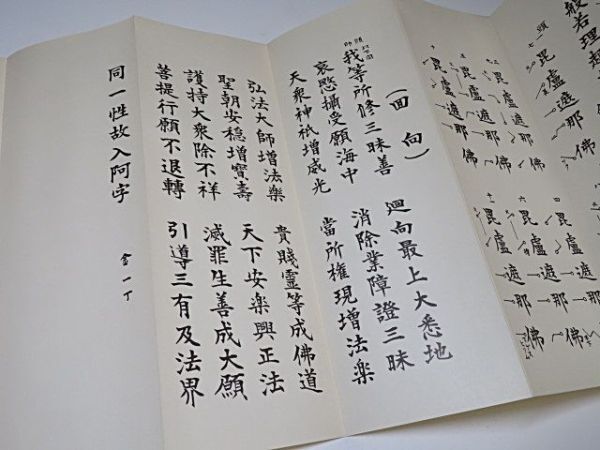 般若理趣
毘盧遮那
毘盧遮那佛
毘盧遮那佛
毘盧遮那佛
毘盧遮那佛
毘盧遮那佛
毘盧遮那佛
（囬向）
我等所修三昧善 廻向最上大悉地
哀愍攝受願海中 消除業障證三昧
天衆神祇增威光 當所権現增法楽
弘法大師增法楽 貴賤靈等成佛道
聖朝安穏增寳壽 天下安楽興正法
護持大衆除不祥 滅罪生善成大願
菩提行願不退轉 引導三有及法界
同一性故入阿字 金一丁